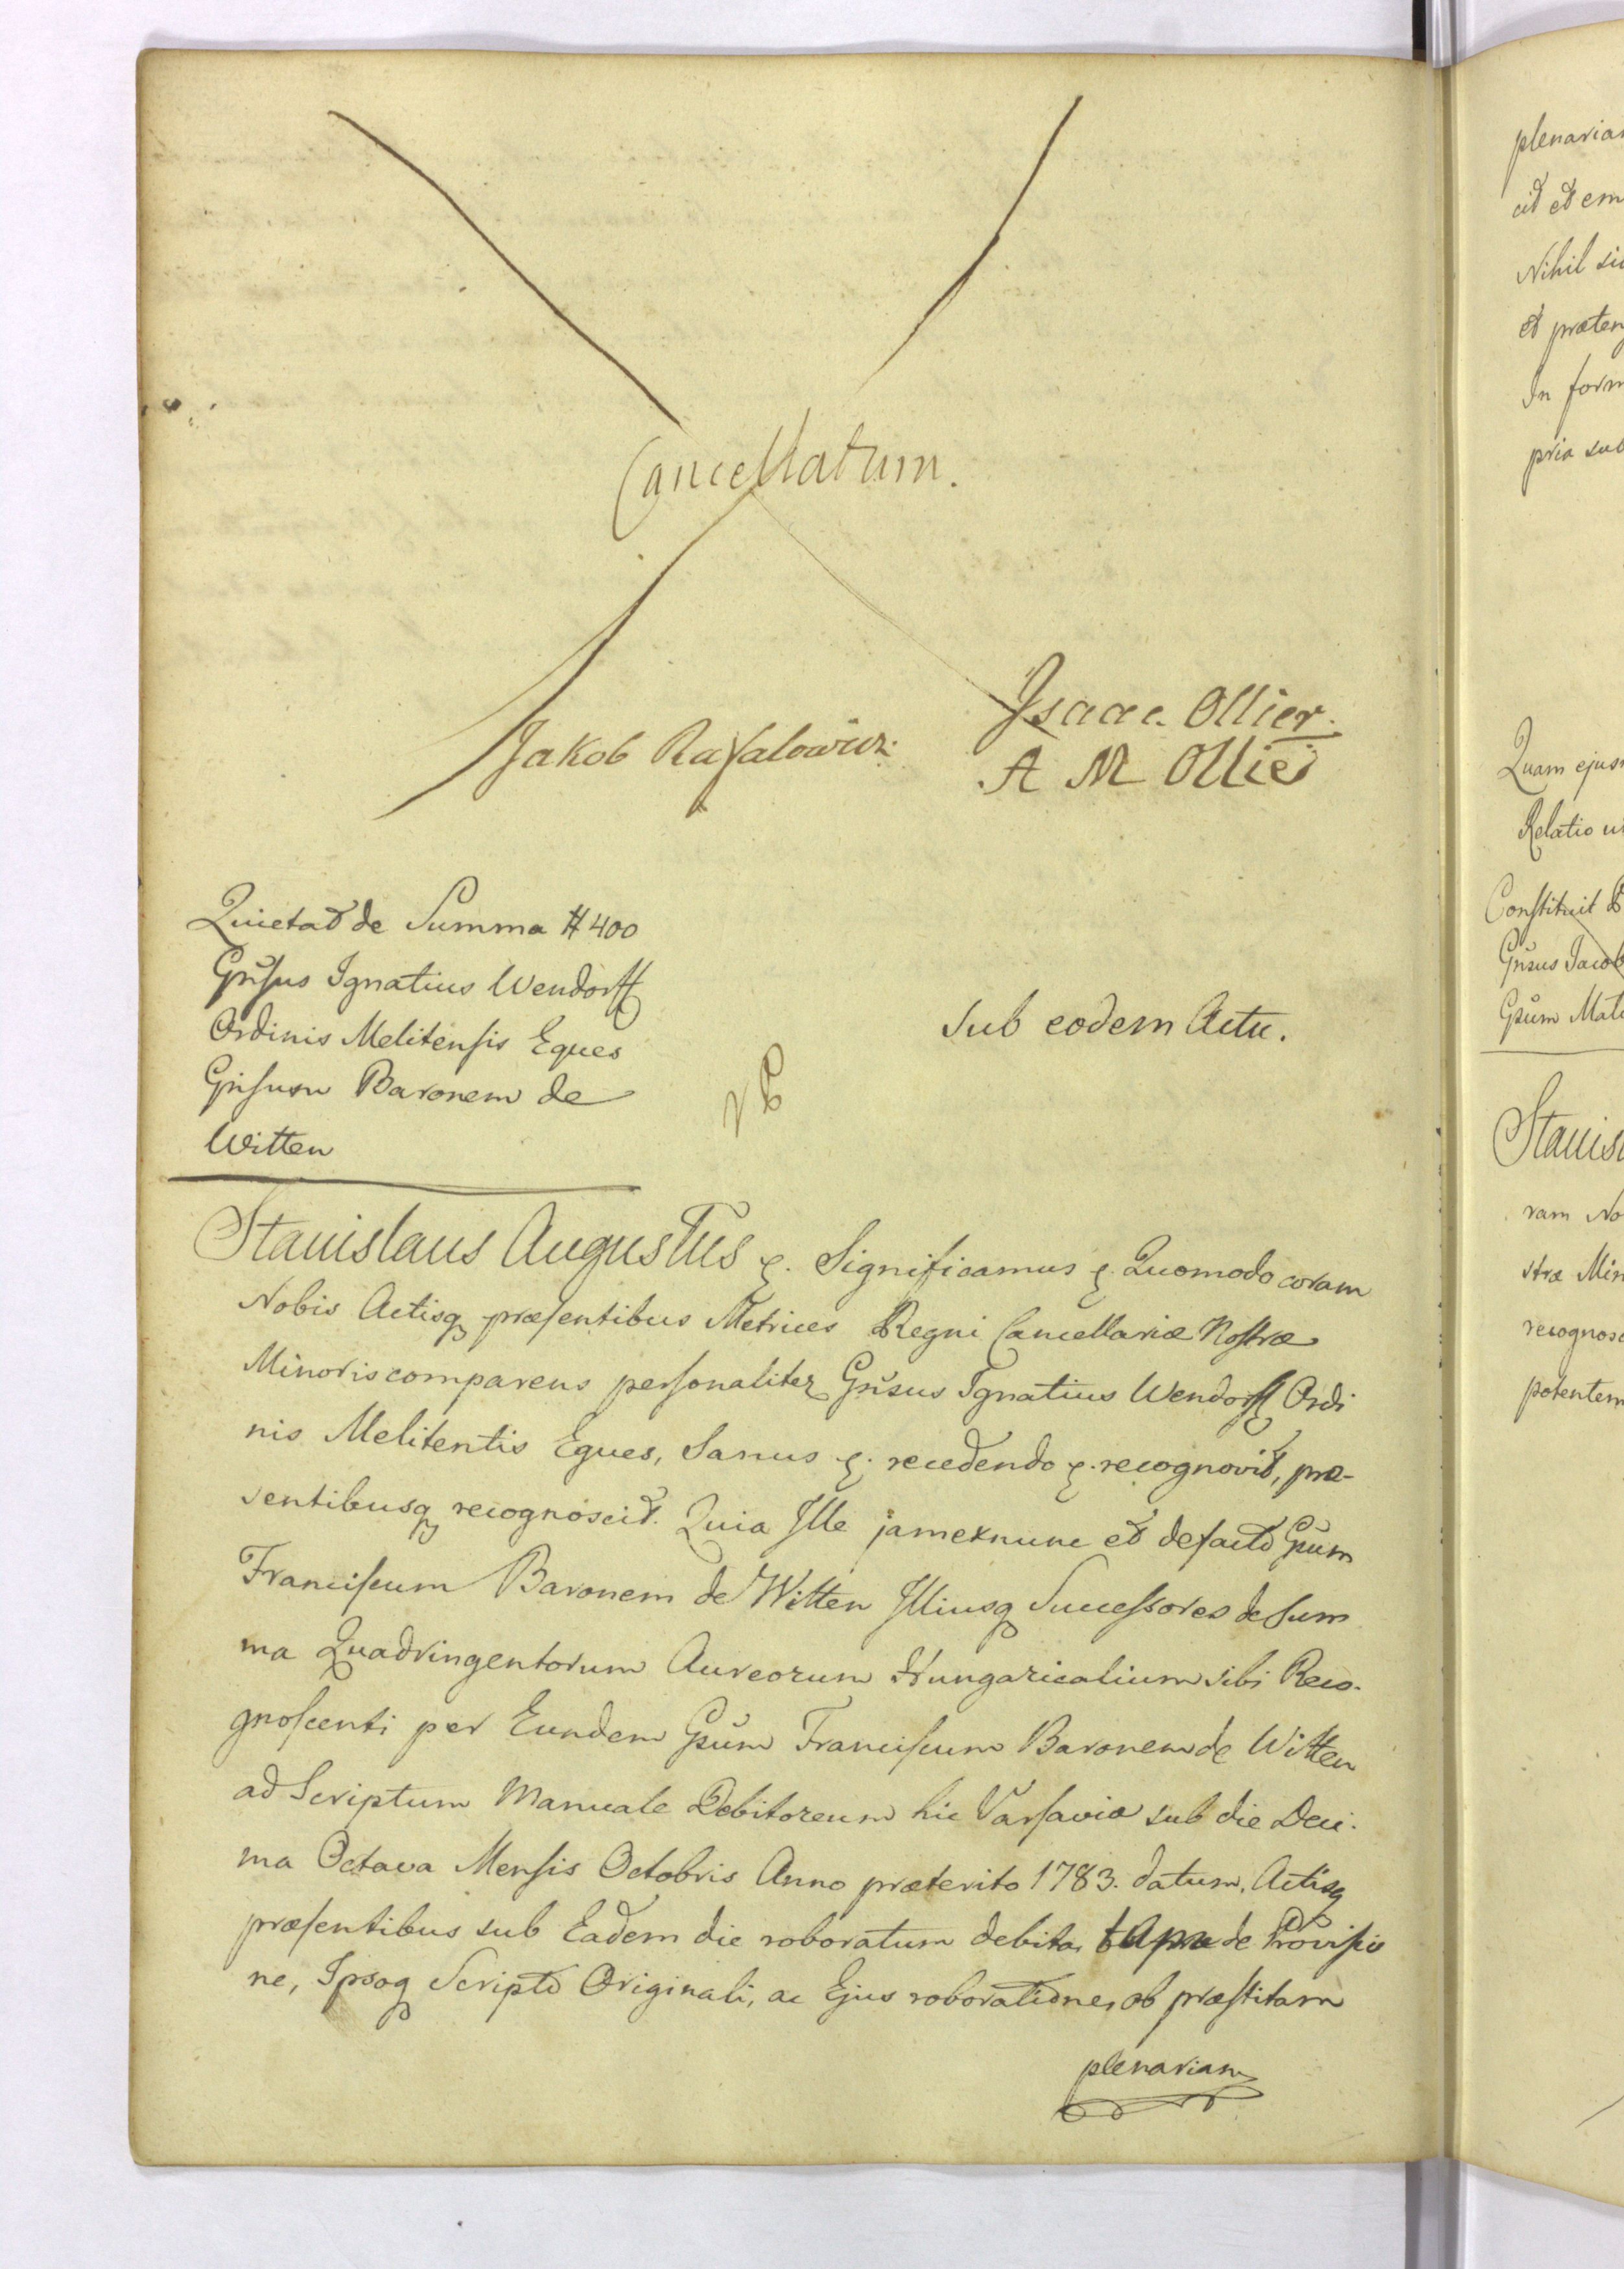 Cancellatum.
Jakob Rafalowicz
Isaac Ollier.
A M Ollier
Quietat de Summa # 400
Gnsus Ignatius Wendorff
Ordinis Melitensis Eques
Gnsum Baronem de
Witten
Sub eodem Actu.
Stanislaus Augustus &. Significamus &. Quomodo coram
Nobis Actisq præsentibus Metrices Regni Cancellariæ Nostræ
Minoris comparens personaliter Gnsus Ignatius Wendorff Ordi
nis Melitentis Eques, Sanus &. recedendo &. recognovit, præ-
sentibusq recognoscit. Quia Ille jam exnunc et defacto Gsum
Franciscum Baronem de Witten Illiusq Successores de Sum
ma Quadringentorum Aureorum Hungaricalium sibi Reco-
gnoscenti per Eundem Gsum Franciscum Baronem de Witten
ad Scriptum Manuale Debitoreum hic Varsaviæ sub die Deci-
ma Octava Mensis Octobris Anno præterito 1783. datum, Actisq
præsentibus sub Eadem die roboratum debita, de Provisio
ne, Ipsoq Scripto Originali, ac Ejus roboratione, ob præstitam
plenariam
plenariam
Nihil
In form
pria sub
Relatio
Constituit
Gnsus Jacob
Gsum
Stanisl
ram No
stræ Min
recognosc
potentem